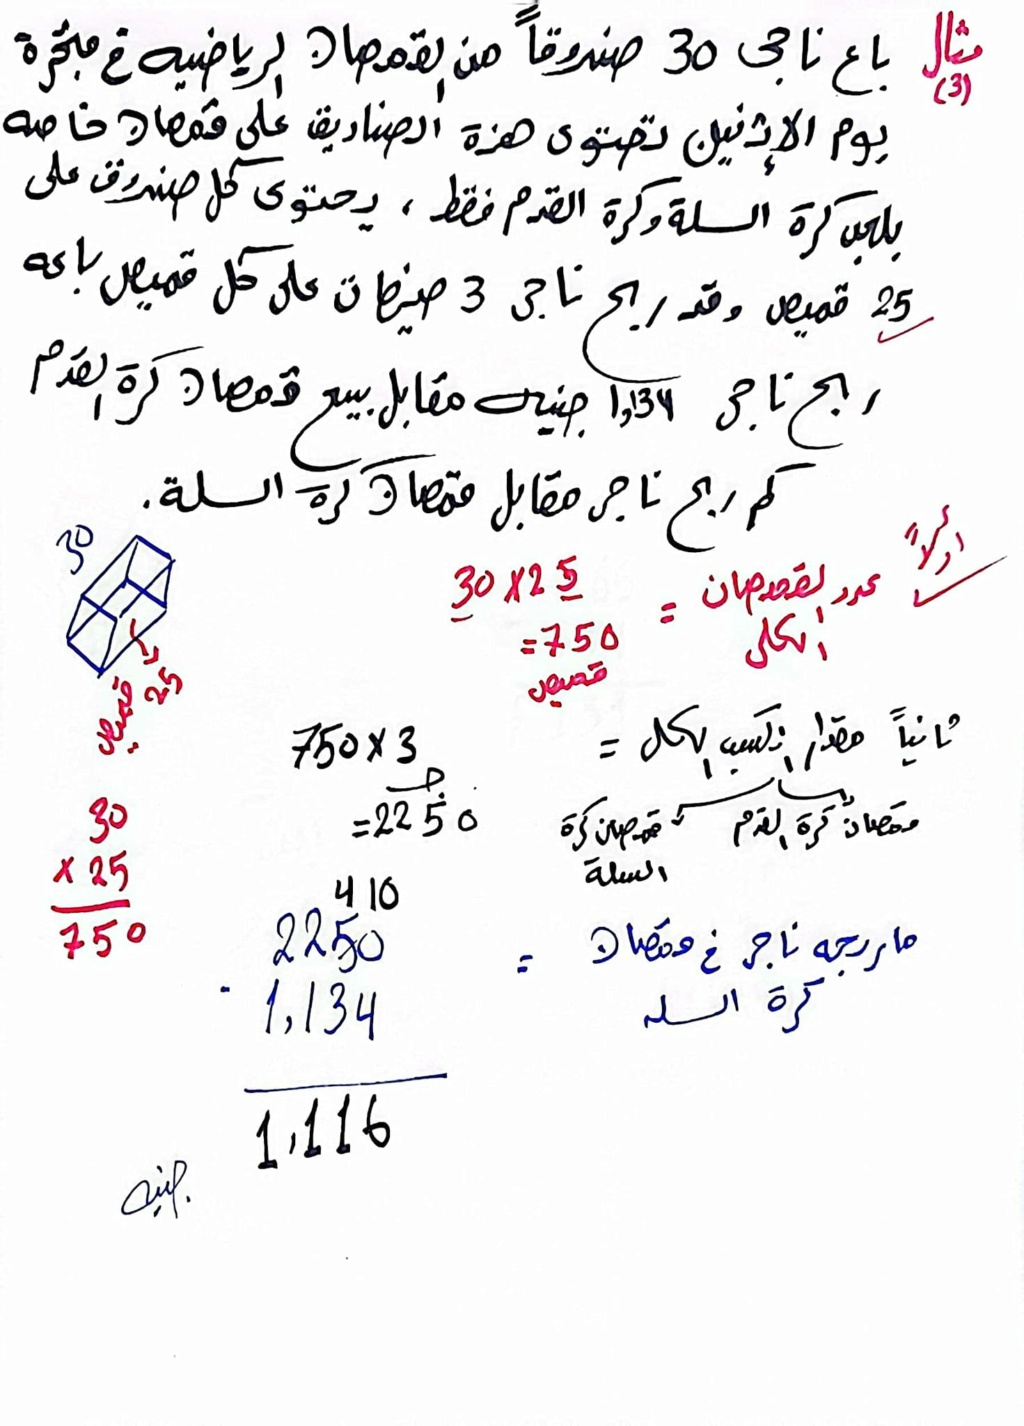 مثال (3)
باع ناجى 30 صندوقاً من القمصان الرياضيه فى متجرة
يوم الإثنين تحتوى هذة الصناديق على قمصان خاصه
بلعب كرة السلة وكرة القدم فقط ، يحتوى كل صندوق على
25 قميص وقد ربح ناجى 3 جنيهات على كل قميص باعه
ربح ناجى 1,134 جنيه مقابل بيع قمصان كرة القدم
كم ربح ناجى مقابل قمصان كرة السلة .
أولاً
عدد القمصان الكلى = 30 x 25
= 750
قميص
30
25
قميص
ثانياً مقدار الكسب الكلى = 750 x 3
= 2250
قمصان كرة القدم
قمصان كرة السلة
30
x 25
750
ما ربحه ناجى فى قمصان كرة السله =
4 10
2250
- 1,134
1,116
جنيه